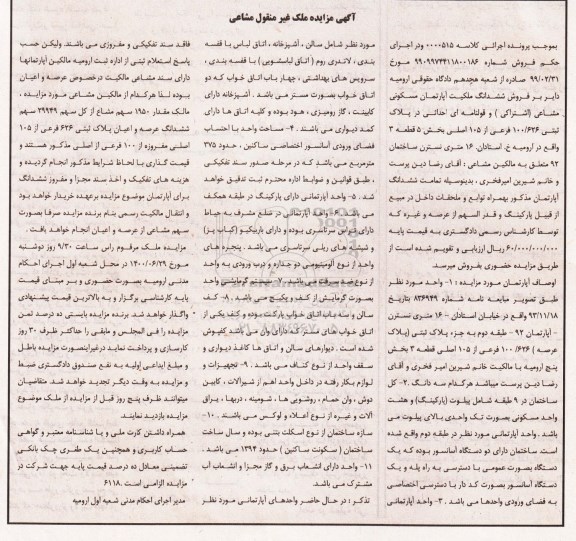 آگهی مزایده ملک غیر منقول مشاعی
بموجب پرونده اجرائی کلاسه ۰۰۰۰۵۱۵ ودر اجرای
حکم فروش شماره ۹۹۰۹۹۷۴۴۱۱۸۰۰۱۸۶ مورخ
۹۹/۰۲/۳۱ صادره از شعبه هجدهم دادگاه حقوقی ارومیه
دایر بر فروش ششدانگ ملکیت آپارتمان مسکونی
مشاعی (اشتراکی ) و قولنامه ای احداثی در پلاک
ثبتی ۱۰۰/۶۲۶ فرعی از ۱۰۵ اصلی بخش ۵ قطعه ۳
واقع در ارومیه خ. استادان. ۱۶ متری نسترن ساختمان
۹۲ متعلق به مالکین مشاعی : آقای رضا دین پرست
و خانم شیرین امیرفخری ، بدینوسیله تمامت ششدانگ
آپارتمان مذکور بهمراه توابع و ملحقات داخل در مبیع
از قبیل پارکینگ و قدر السهم از عرصه و غیره که
توسط کارشناس رسمی دادگستری به قیمت پایه
۶۰/۰۰۰/۰۰۰/۰۰۰ ریال ارزیابی و تقویم شده است از
طریق مزایده حضوری بفروش میرسد.
اوصاف آپارتمان مورد مزایده : ۱- واحد مورد نظر
طبق تصویر مبایعه نامه شماره ۸۳۶۹۴۹ بتاریخ
93/11/18 واقع در خیابان استادان – ۱۶ متری نسترن
- آپارتمان ۹۲ - طبقه دوم به جزء پلاک ثبتی (پلاک
عرصه ) ۶۲۶/ ۱۰۰ فرعی از ۱۰۵ اصلی قطعه ۳ بخش
پنج ارومیه با مالکیت خانم شیرین امیر فخری و آقای
رضا دین پرست میباشد هرکدام سه دانگ .۲- کل
ساختمان در ۹ طبقه شامل پیلوت (پارکینگ) و هشت
واحد مسکونی بصورت تک واحدی بالای پیلوت می
باشد . واحد آپارتمانی مورد نظر در طبقه دوم واقع شده
است. ساختمان دارای دو دستگاه آسانسور بوده که یک
دستگاه بصورت عمومی با دسترسی به راه پله و یک
دستگاه آسانسور بصورت کد دار با دسترسی اختصاصی
به فضای ورودی واحدها می باشد . ۳- واحد آپارتمانی
مورد نظر شامل سالن ، آشپزخانه ، اتاق لباس با قفسه
بندی ، لاندری روم ( اتاق لباسشویی ) با قفسه بندی ،
سرویس های بهداشتی ، چهار باب اتاق خواب که دو
اتاق خواب بصورت مستر می باشد . آشپزخانه دارای
کابینت ، گاز رومیزی ، هود بوده و کلیه اتاق ها دارای
کمد دیواری می باشند . ۴- مساحت واحد با احتساب
فضای ورودی آسانسور اختصاصی ساکنین ، حدود ۳۷۵
مترمربع می باشد که در مرحله صدور سند تفکیکی
، طبق قوانین و ضوابط اداره محترم ثبت تدقیق خواهد
شد . ۵- واحد آپارتمانی دارای پارکینگ در طبقه همکف
می باشد . ۶- واحد آپارتمانی در ضلع مشرف به حیاط
دارای تراس سرتاسری بوده و دارای باربکیو (کباب پز)
و شیشه های ریلی سرتاسری می باشد . پنجره های
واحد از نوع آلومینیومی دو جداره و درب ورودی به واحد
از نوع ضد سرقت می باشد . ۷- سیستم گرمایشی واحد
بصورت گرمایش از کف و پکیج می باشد . ۸- کف
سالن و سه باب اتاق خواب پارکت بوده و کف یکی از
اتاق خواب های مستر که دارای وان می باشد کفپوش
شده است . دیوارهای سالن و اتاق ها کاغذ دیواری و
سقف واحد از نوع کناف می باشد . ۹- تجهیزات و
لوازم بکار رفته در داخل واحد اهم از شیرآلات ، کابین
دوش ، وان حمام ، روشویی ها ، شومینه ، دربها ، یراق
آلات و غیره از نوع اعلاء و لوکس می باشند . ۱۰-
سازه ساختمان از نوع اسکلت بتنی بوده و سال ساخت
ساختمان ( سکونت ساکنین ) حدود ۱۳۹۴ می باشد .
۱۱- واحد دارای انشعاب برق و گاز مجزا و انشعاب آب
مشترک می باشد.
تذکر : در حال حاضر واحدهای آپارتمانی مورد نظر
فاقد سند تفکیکی و مفروزی می باشند. ولیکن حسب
پاسخ استعلام ثبتی از اداره ثبت ارومیه مالکین آپارتمانها
دارای سند مشاعی مالکیت درخصوص عرصه و اعیان
بوده لذا هرکدام از مالکین مشاعی مورد مزایده ،
مالک مقدار ۱۹۵۰ سهم مشاع از کل سهم ۲۹۹۴۹ سهم
ششدانگ عرصه و اعیان پلاک ثبتی ۶۲۶ فرعی از ۱۰۵
اصلی مفروزه از ۱۰۰ فرعی از اصلی مذکور هستند و
قیمت گذاری با لحاظ شرایط مذکور انجام گردیده و
هزینه های تفکیک و اخذ سند مجزا و مفروز ششدانگ
برای آپارتمان موضوع مزایده برعهده خریدار خواهد بود
و انتقال مالکیت رسمی بنام برنده مزایده صرفا بصورت
سهم مشاعی از عرصه و اعیان انجام خواهد یافت .
مزایده ملک مرقوم راس ساعت ۹/۳۰ روز دوشنبه
مورخ ۱۴۰۰/۰۶/۲۹ در محل شعبه اول اجرای احکام
مدنی ارومیه بصورت حضوری و بر مبنای قیمت
پایه کارشناسی برگزار و به بالاترین قیمت پیشنهادی
واگذار خواهد شد. برنده مزایده بایستی ده درصد ثمن
مزایده را فی المجلس و مابقی را حداکثر ظرف ۳۰ روز
کارسازی و پرداخت نماید درغیراینصورت مزایده باطل
و مبلغ ابداعی اولیه به نفع صندوق دادگستری ضبط
و مزایده به وقت دیگر تجدید خواهد شد. متقاضیان
میتوانند ظرف پنج روز قبل از مزایده از ملک موضوع
مزایده بازدید نمایند.
همراه داشتن کارت ملی و یا شناسنامه معتبر و گواهی
حساب کاربری و همچنین یک طغری چک بانکی
تضمینی معادل ده درصد قیمت پایه جهت شرکت در
مزایده الزامی است .۶۱۱۸
مدیر اجرای احکام مدنی شعبه اول ارومیه